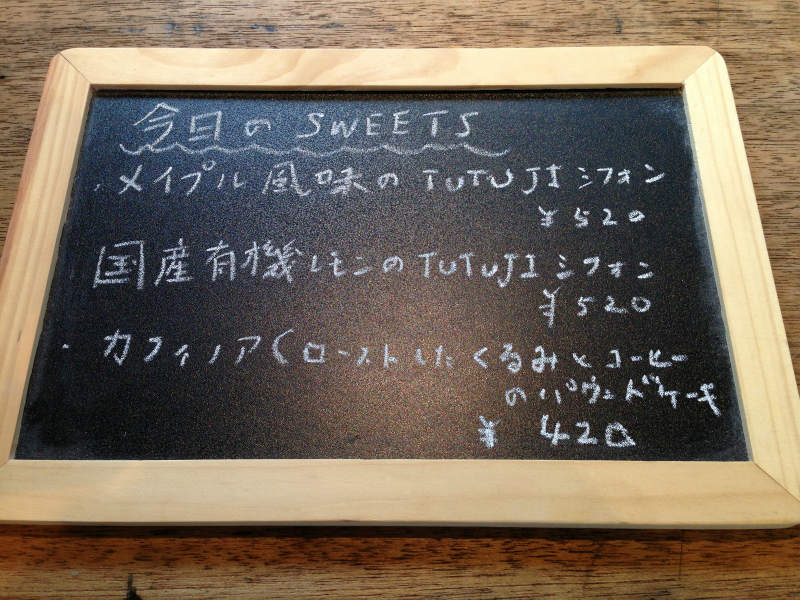 今日の SWEETS
・メイプル風味の TUTUJI シフォン
¥520
国産有機レモンの TUTUJI シフォン
¥520
・カフィノア(ローストしたくるみとコーヒー
のパウンドケーキ
¥420